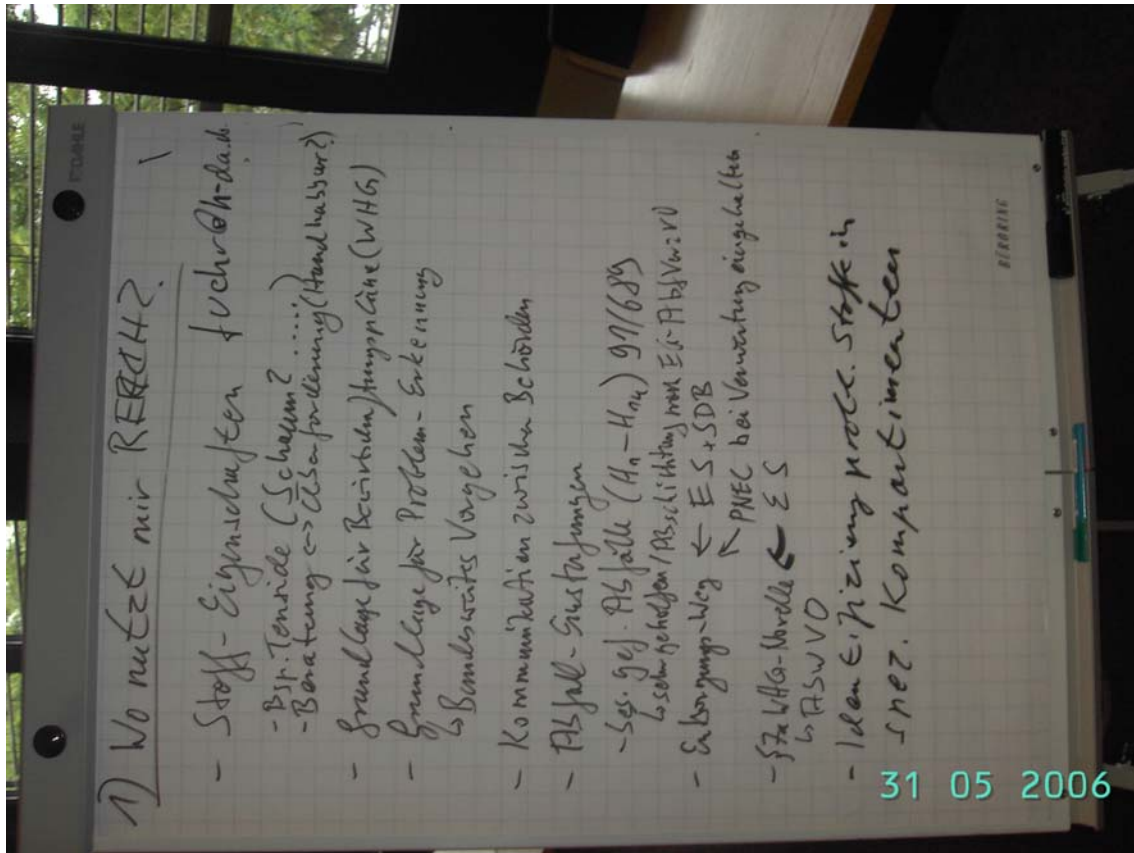 DAHLE
1) Wo nutzt mir REACH?
- Stoff-Eigenschaften fuchr@h-da.de
- Bsp. Tenside (Schaum? .....)
- Beratung <-> CSA forderung (Handhabbar?)
- Grundlage für Bewirtschaftungspläne (WHG)
- Grundlage für Problem-Erkennung
↳ Bundesweites Vorgehen
- Kommunikation zwischen Behörden
- Abfall-Einstufungen
- Ges. gef. Abfälle (H1-H14) 91/689
↳ sehr geholfen/Abschichtung
- Entsorgungs-Weg ← ES + SDB
↖ PNEC bei Verwertung eingehalten
- §7a WHG-Novelle ← ES
↳ ASWVO
- Identifizierung probl. Stoffe in
spez. Kompartimenten
BEROLING
31 05 2006